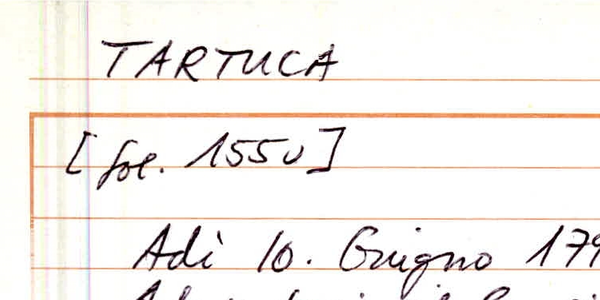 TARTUCA
[fol. 155v]
Adì 10. Giugno 179